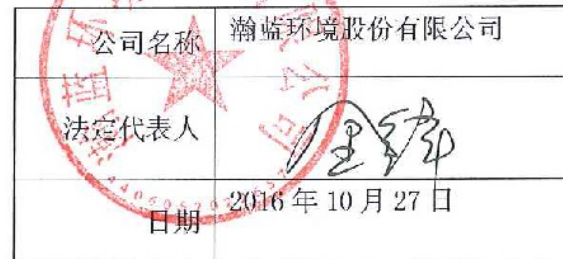 公司名称 瀚蓝环境股份有限公司
法定代表人 金铎
日期 2016 年 10 月 27 日